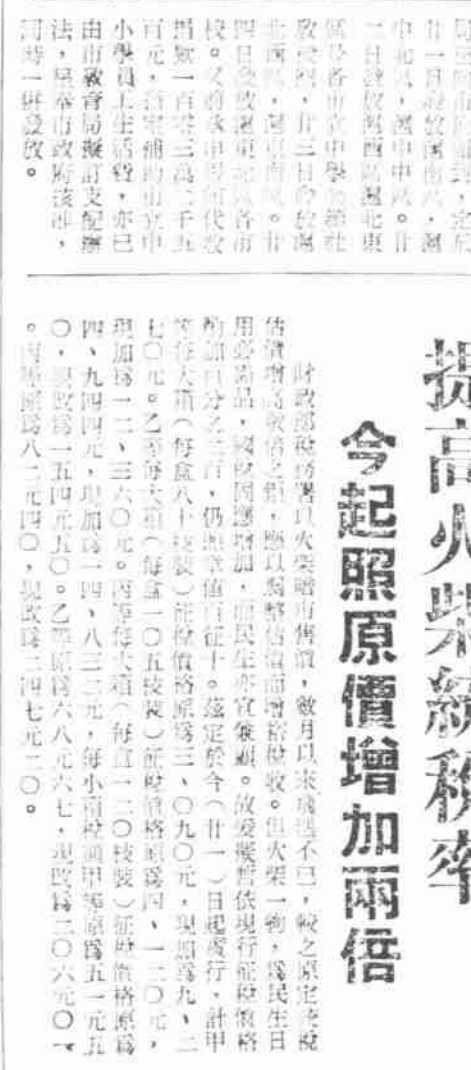 廿一日發放滬南區,滬
中北區,滬中中區。廿
二日發放滬西區滬北東
區及各市立中學社
教機關,廿三日發放滬
北西區,滬東南區。廿
四日發放滬東北區各市
校。又前承申報館代收
捐款一百零三萬二千五
百元,指定補助市立中
小學員工生活費,亦已
由市教育局擬訂支配辦
法,呈奉市政府核准,
同時一併發放。
提高火柴統稅率
今起照原價增加兩倍
財政部稅務署以火柴暗市售價,數月以來飛漲不已,較之原定統稅
估價增高數倍之鉅,應以調整估價而增裕稅收。但火柴一物,爲民生日
用必需品,國庫固應增加,而民生亦宜兼顧。故爰擬暫依現行征稅價格
增加百分之二百,仍照章值百征十。茲定於今(廿一)日起實行,計甲
等每大箱(每盒八十枝裝)征稅價格原爲三、〇九〇元,現加爲九、二
七〇元。乙等每大箱(每盒一〇五枝裝)征稅價格原爲四、一二〇元,
現加爲一二、三六〇元。丙等每大箱(每盒一二〇枝裝)征稅價格原爲
四、九四四元,現加爲一四、八三二元,每小箱稅額甲等原爲五一元五
〇,現改爲一五四元五〇。乙等原爲六八元六七,現改爲二〇六元〇一
。丙等原爲八二元四〇,現改爲二四七元二〇。